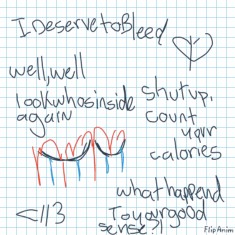 IDeservetoBleed
well,well
lookwhosinside
again
shutup,
count
your
calories
what happend
Toyourgood
sense?!
<//3
FlipAnim